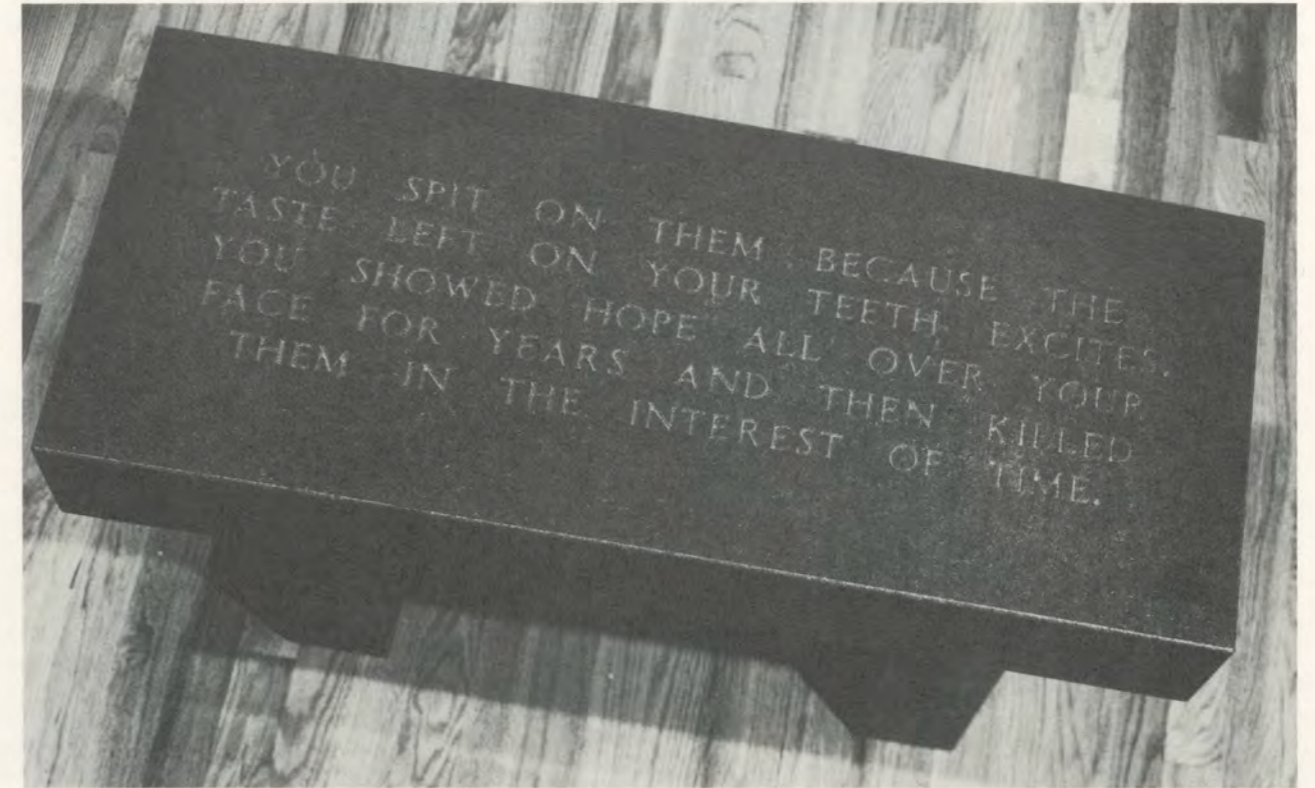 YOU SPIT ON THEM BECAUSE THE
TASTE LEFT ON YOUR TEETH EXCITES.
YOU SHOWED HOPE ALL OVER YOUR
FACE FOR YEARS AND THEN KILLED
THEM IN THE INTEREST OF TIME.